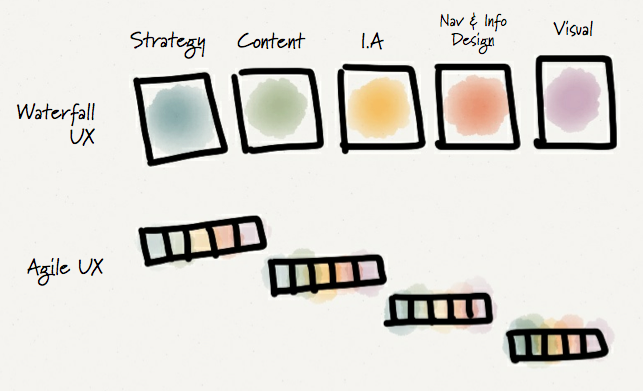 Strategy
Content
I.A
Nav & Info
Design
Visual
Waterfall
UX
Agile UX